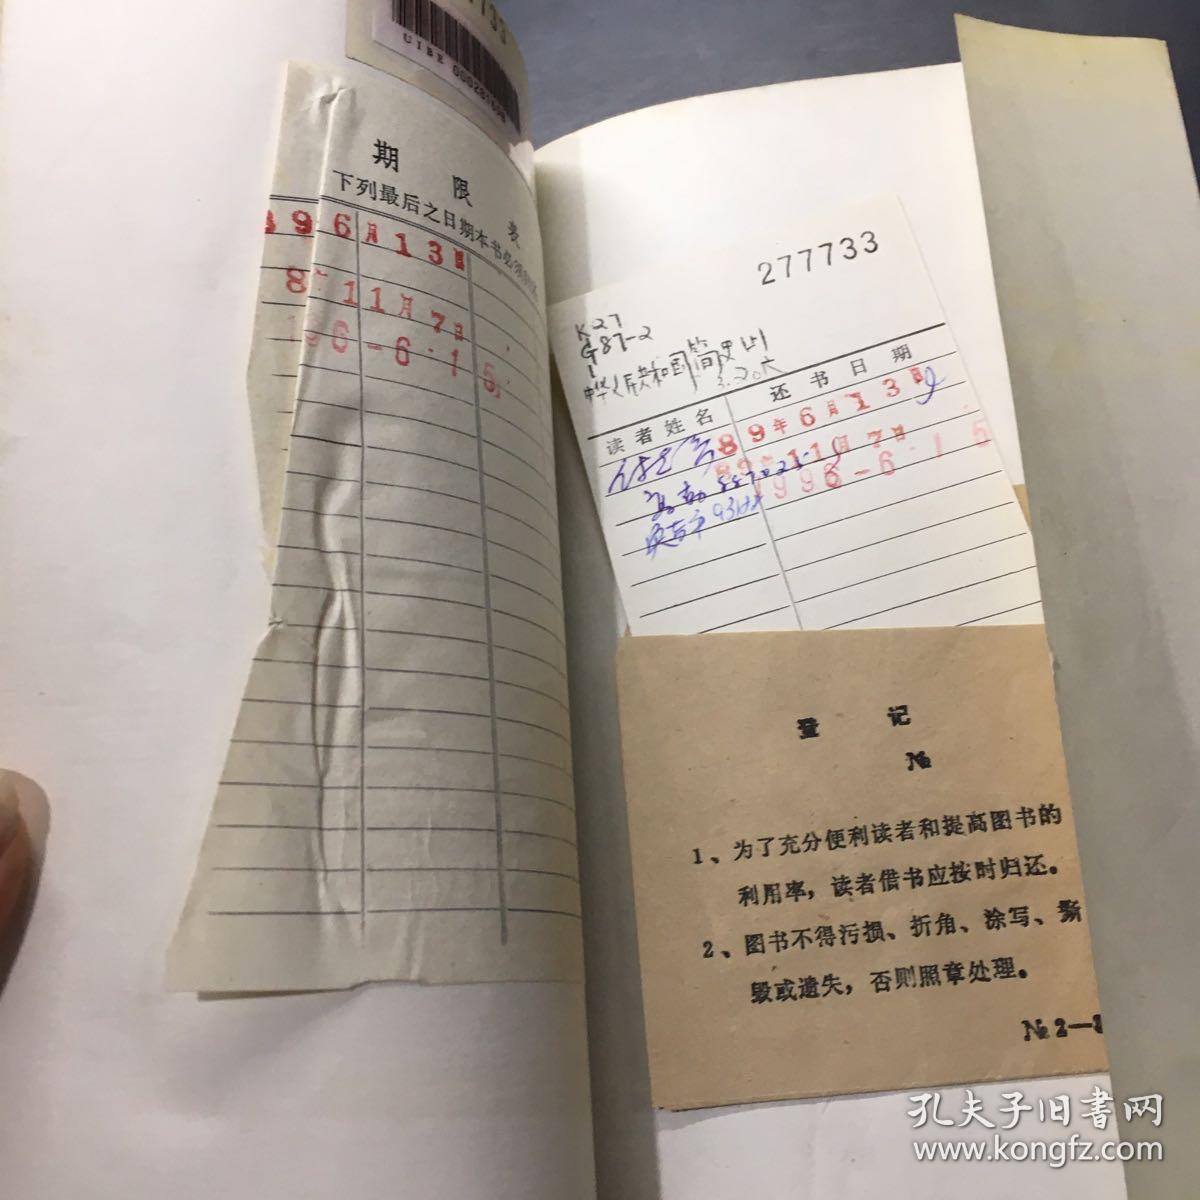 7733
UIBE
期 限 表
下列最后之日期本书必须
896月13日
11月7日
1996-6.15
277733
K27
G87-2
1
中华人民共和国简史
3.20元
读者姓名 还书日期
89年6月13日
89年11月7日
1996-6.15
登 记
№
1、为了充分便利读者和提高图书的
利用率，读者借书应按时归还。
2、图书不得污损、折角、涂写、撕
毁或遗失，否则照章处理。
№2—3
孔夫子旧書网
www.kongfz.com